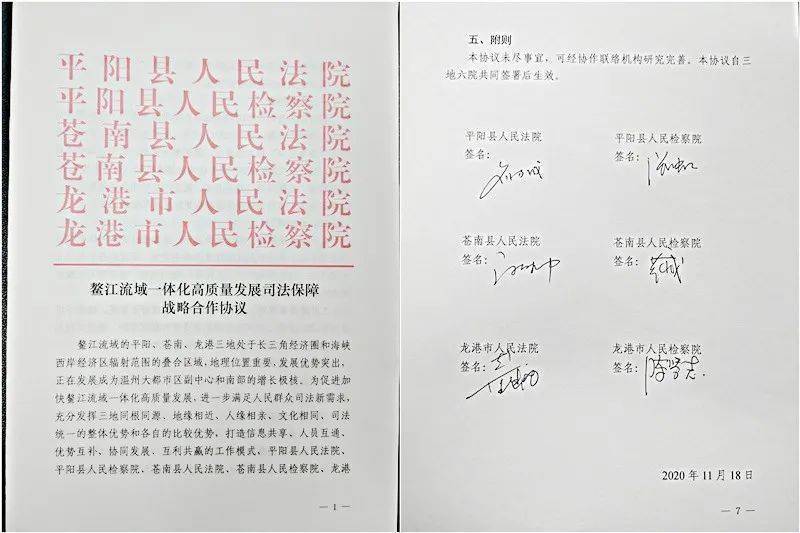 平阳县人民法院
平阳县人民检察院
苍南县人民法院
苍南县人民检察院
龙港市人民法院
龙港市人民检察院
鳌江流域一体化高质量发展司法保障
战略合作协议
鳌江流域的平阳、苍南、龙港三地处于长三角经济圈和海峡
西岸经济区辐射范围的叠合区域，地理位置重要，发展优势突出，
正在发展成为温州大都市区副中心和南部的增长极核。为促进加
快鳌江流域一体化高质量发展，进一步满足人民群众司法新需求，
充分发挥三地同根同源、地缘相近、人缘相亲、文化相同、司法
统一的整体优势和各自的比较优势，打造信息共享、人员互通、
优势互补、协同发展、互利共赢的工作模式，平阳县人民法院、
平阳县人民检察院、苍南县人民法院、苍南县人民检察院、龙港
— 1 —
五、附则
本协议未尽事宜，可经协作联络机构研究完善。本协议自三
地六院共同签署后生效。
平阳县人民法院
签名：
平阳县人民检察院
签名：
苍南县人民法院
签名：
苍南县人民检察院
签名：
龙港市人民法院
签名：
龙港市人民检察院
签名：
2020 年 11 月 18 日
— 7 —